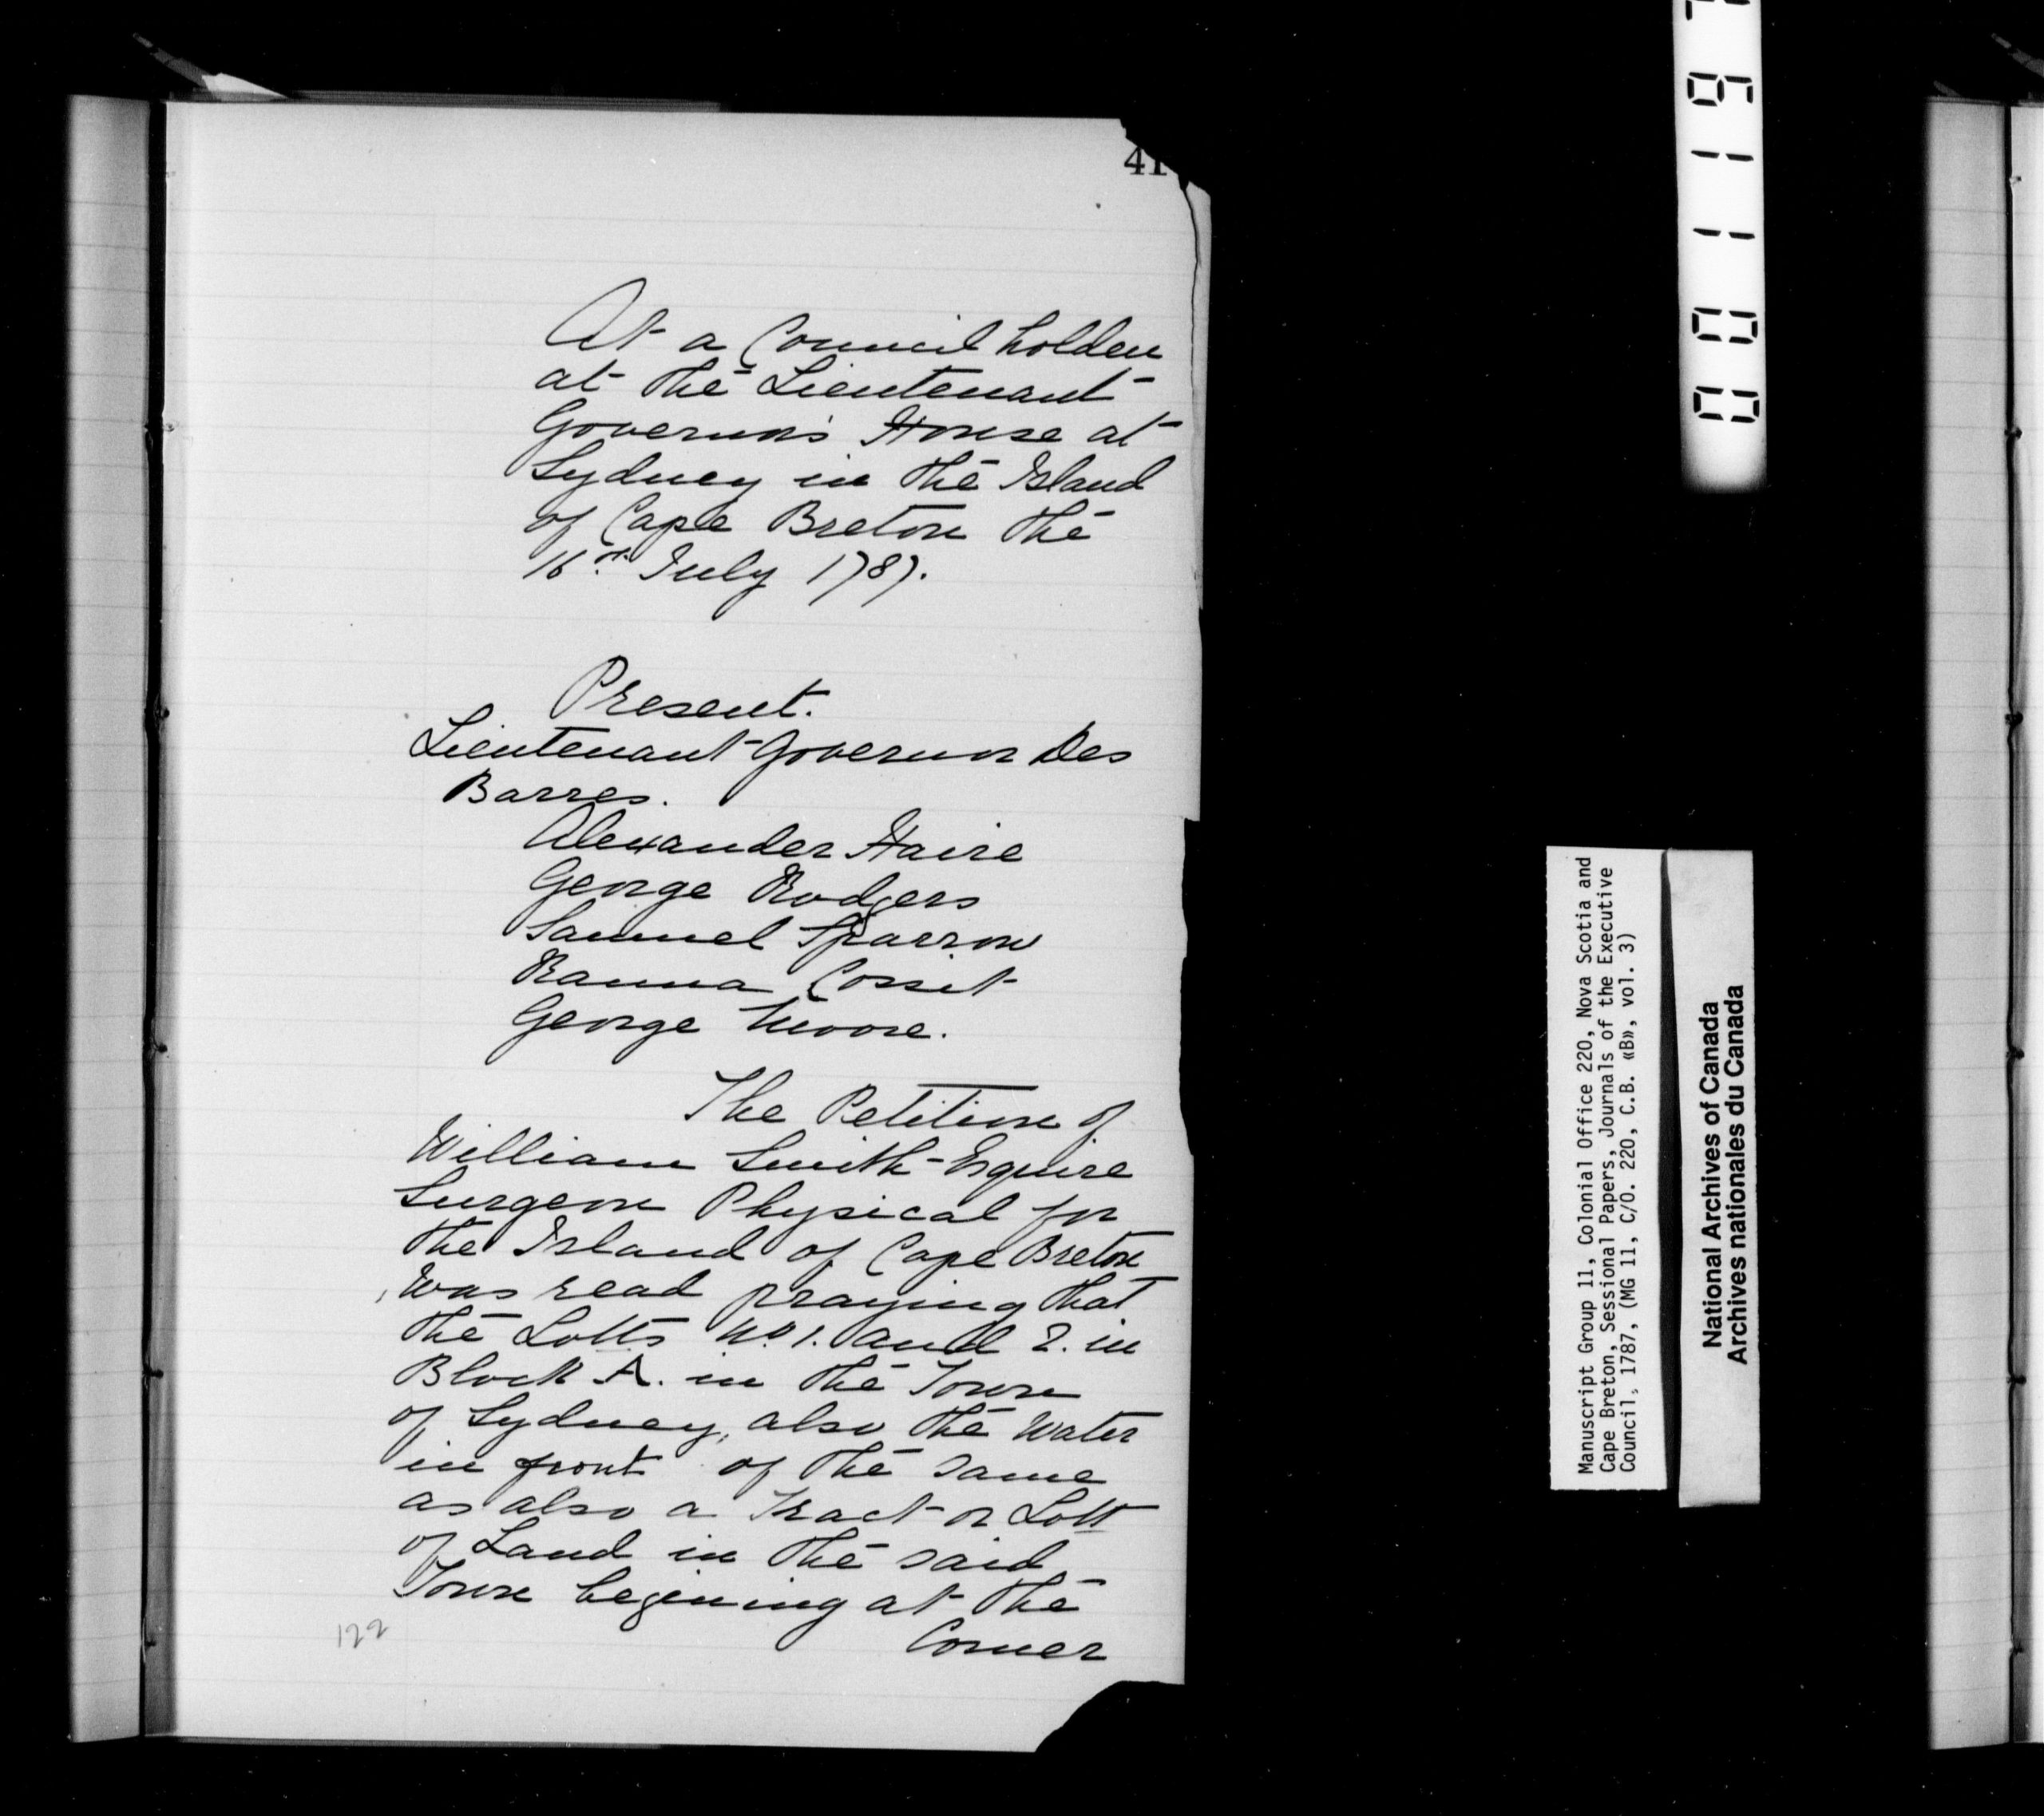 41
At a Council holden
at the Lieutenant
Governor's House at
Sydney in the Island
of Cape Breton the
16th July 1787.
Present.
Lieutenant Governor Des
Barres.
Alexander Haire
George Rodgers
Samuel Sparrow
Ranna Cossit
George Moore.
The Petition of
William Smith Esquire
Surgeon Physical for
the Island of Cape Breton
was read praying that
the Lotts No. 1. and 2. in
Block A. in the Town
of Sydney, also the Water
in front of the same
as also a Tract or Lott
of Land in the said
Town begining at the
Corner
122
Manuscript Group 11, Colonial Office 220, Nova Scotia and
Cape Breton, Sessional Papers, Journals of the Executive
Council, 1787, (MG 11, C/O. 220, C.B. «B», vol. 3)
National Archives of Canada
Archives nationales du Canada